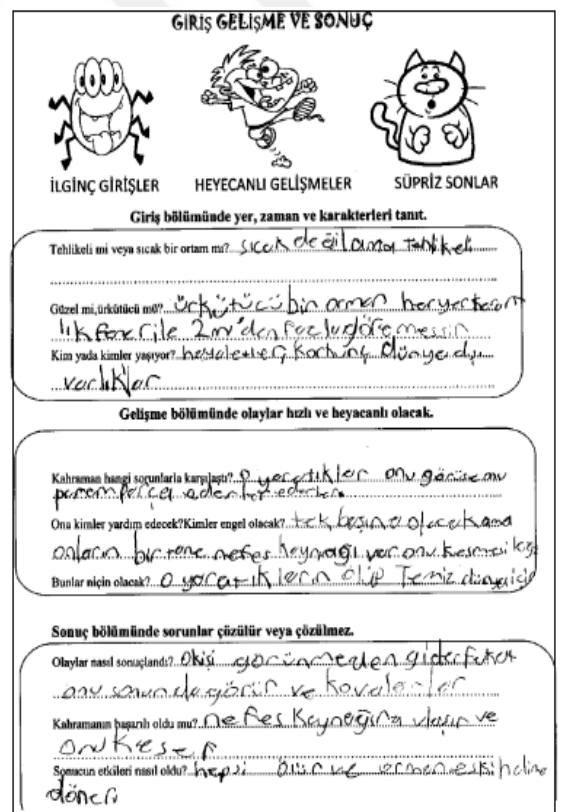 GİRİŞ GELİŞME VE SONUÇ
İLGİNÇ GİRİŞLER HEYECANLI GELİŞMELER SÜPRİZ SONLAR
Giriş bölümünde yer, zaman ve karakterleri tanıt.
Tehlikeli mi veya sıcak bir ortam mı? sıcak değil ama tehlikeli
Güzel mi,ürkütücü mü? ürkütücü bir orman heryer karan
lık fener ile 2m'den fazla göremessin
Kim yada kimler yaşıyor? hayaletler korkunç dünya dışı
varlıklar
Gelişme bölümünde olaylar hızlı ve heyecanlı olacak.
Kahraman hangi sorunlarla karşılaştı? O yaratıklar onu görüse onu
paramparça ederler
Ona kimler yardım edecek?Kimler engel olacak? tek başına olacak ama
onların bir tane nefes kaynağı var onu kesmesi
Bunlar niçin olacak? O yaratıkların ölüp Temiz dünya için
Sonuç bölümünde sorunlar çözülür veya çözülmez.
Olaylar nasıl sonuçlandı? O kişi görünmeden gider fakat
onu sonunda görür ve kovalarlar
Kahramanın başarılı oldu mu? nefes kaynağına ulaşır ve
onu keser
Sonucun etkileri nasıl oldu? hepsi ölür ve orman eski haline
döner